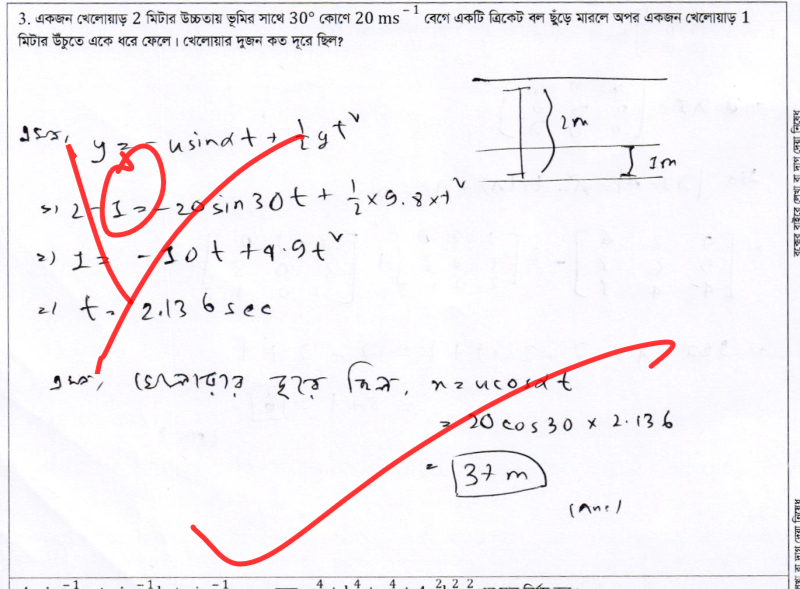 3. একজন খেলোয়াড় 2 মিটার উচ্চতায় ভূমির সাথে 30° কোণে 20 ms⁻¹ বেগে একটি ক্রিকেট বল ছুঁড়ে মারলে অপর একজন খেলোয়াড় 1
মিটার উঁচুতে একে ধরে ফেলে। খেলোয়ার দুজন কত দূরে ছিল?
2m
1m
y = - u sinα t + ½ g t²
2 - 1 = - 20 sin 30 t + ½ × 9.8 × t²
1 = - 10 t + 4.9 t²
t = 2.136 sec
x = u cosα t
= 20 cos 30 × 2.136
= 37 m
(Ans)